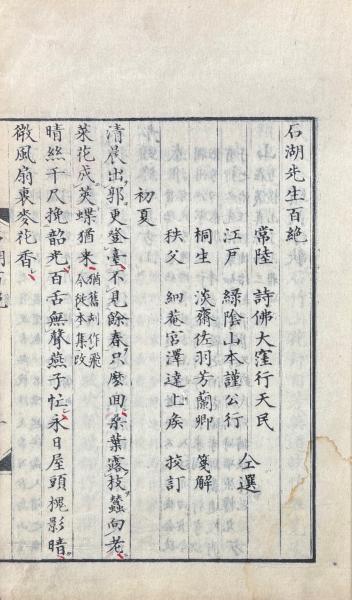 石湖先生百絶
常陸 詩佛大窪行天民
江戸 緑陰山本謹公行 仝選
桐生 淡齋佐羽芳蘭卿 箋解
秩父 細菴宮澤達上矦 挍訂
初夏
清晨出郭更登臺不見餘春只麽回桑葉露枝蠶向老
菜花成莢蝶猶來猶舊刻作飛今從本集改
晴絲千尺挽韶光百舌無聲燕子忙永日屋頭槐影暗
微風扇裏麥花香